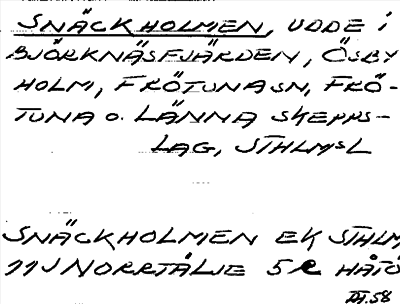 SNÄCKHOLMEN, UDDE i
BJÖRKNÄSFJÄRDEN, ÖSBY
HOLM, FRÖTUNA SN, FRÖ-
TUNA o. LÄNNA SKEPPS-
LAG, STHLMSL
SNÄCKHOLMEN EK STHLM
11J NORRTÄLJE 5 HÅTÖ
58